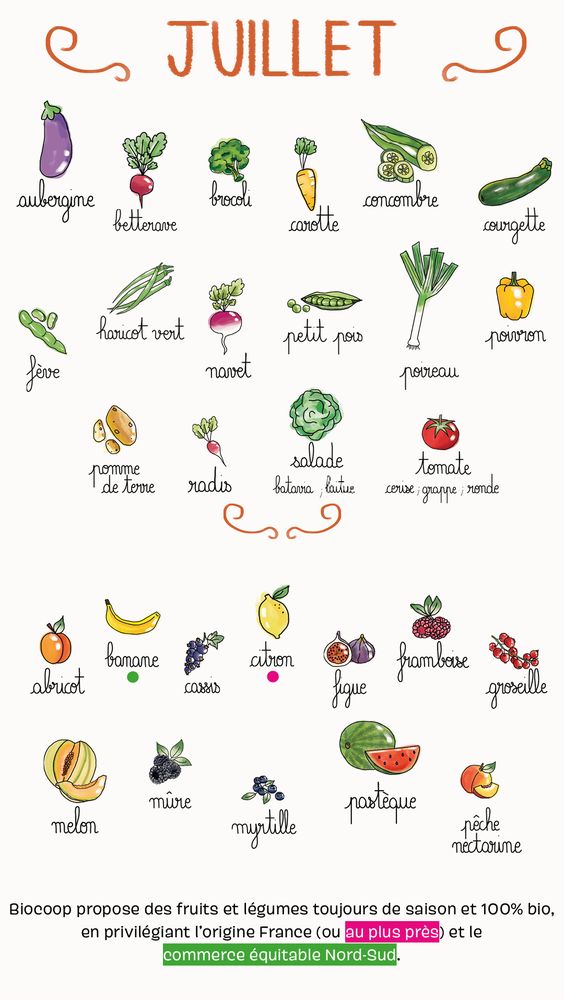 JUILLET
aubergine
betterave
brocoli
carotte
concombre
courgette
fève
haricot vert
navet
petit pois
poireau
poivron
pomme
de terre
radis
salade
batavia ; laitue
tomate
cerise ; grappe ; ronde
abricot
banane
cassis
citron
figue
framboise
groseille
melon
mûre
myrtille
pastèque
pêche
nectarine
Biocoop propose des fruits et légumes toujours de saison et 100% bio,
en privilégiant l'origine France (ou au plus près) et le
commerce équitable Nord-Sud.